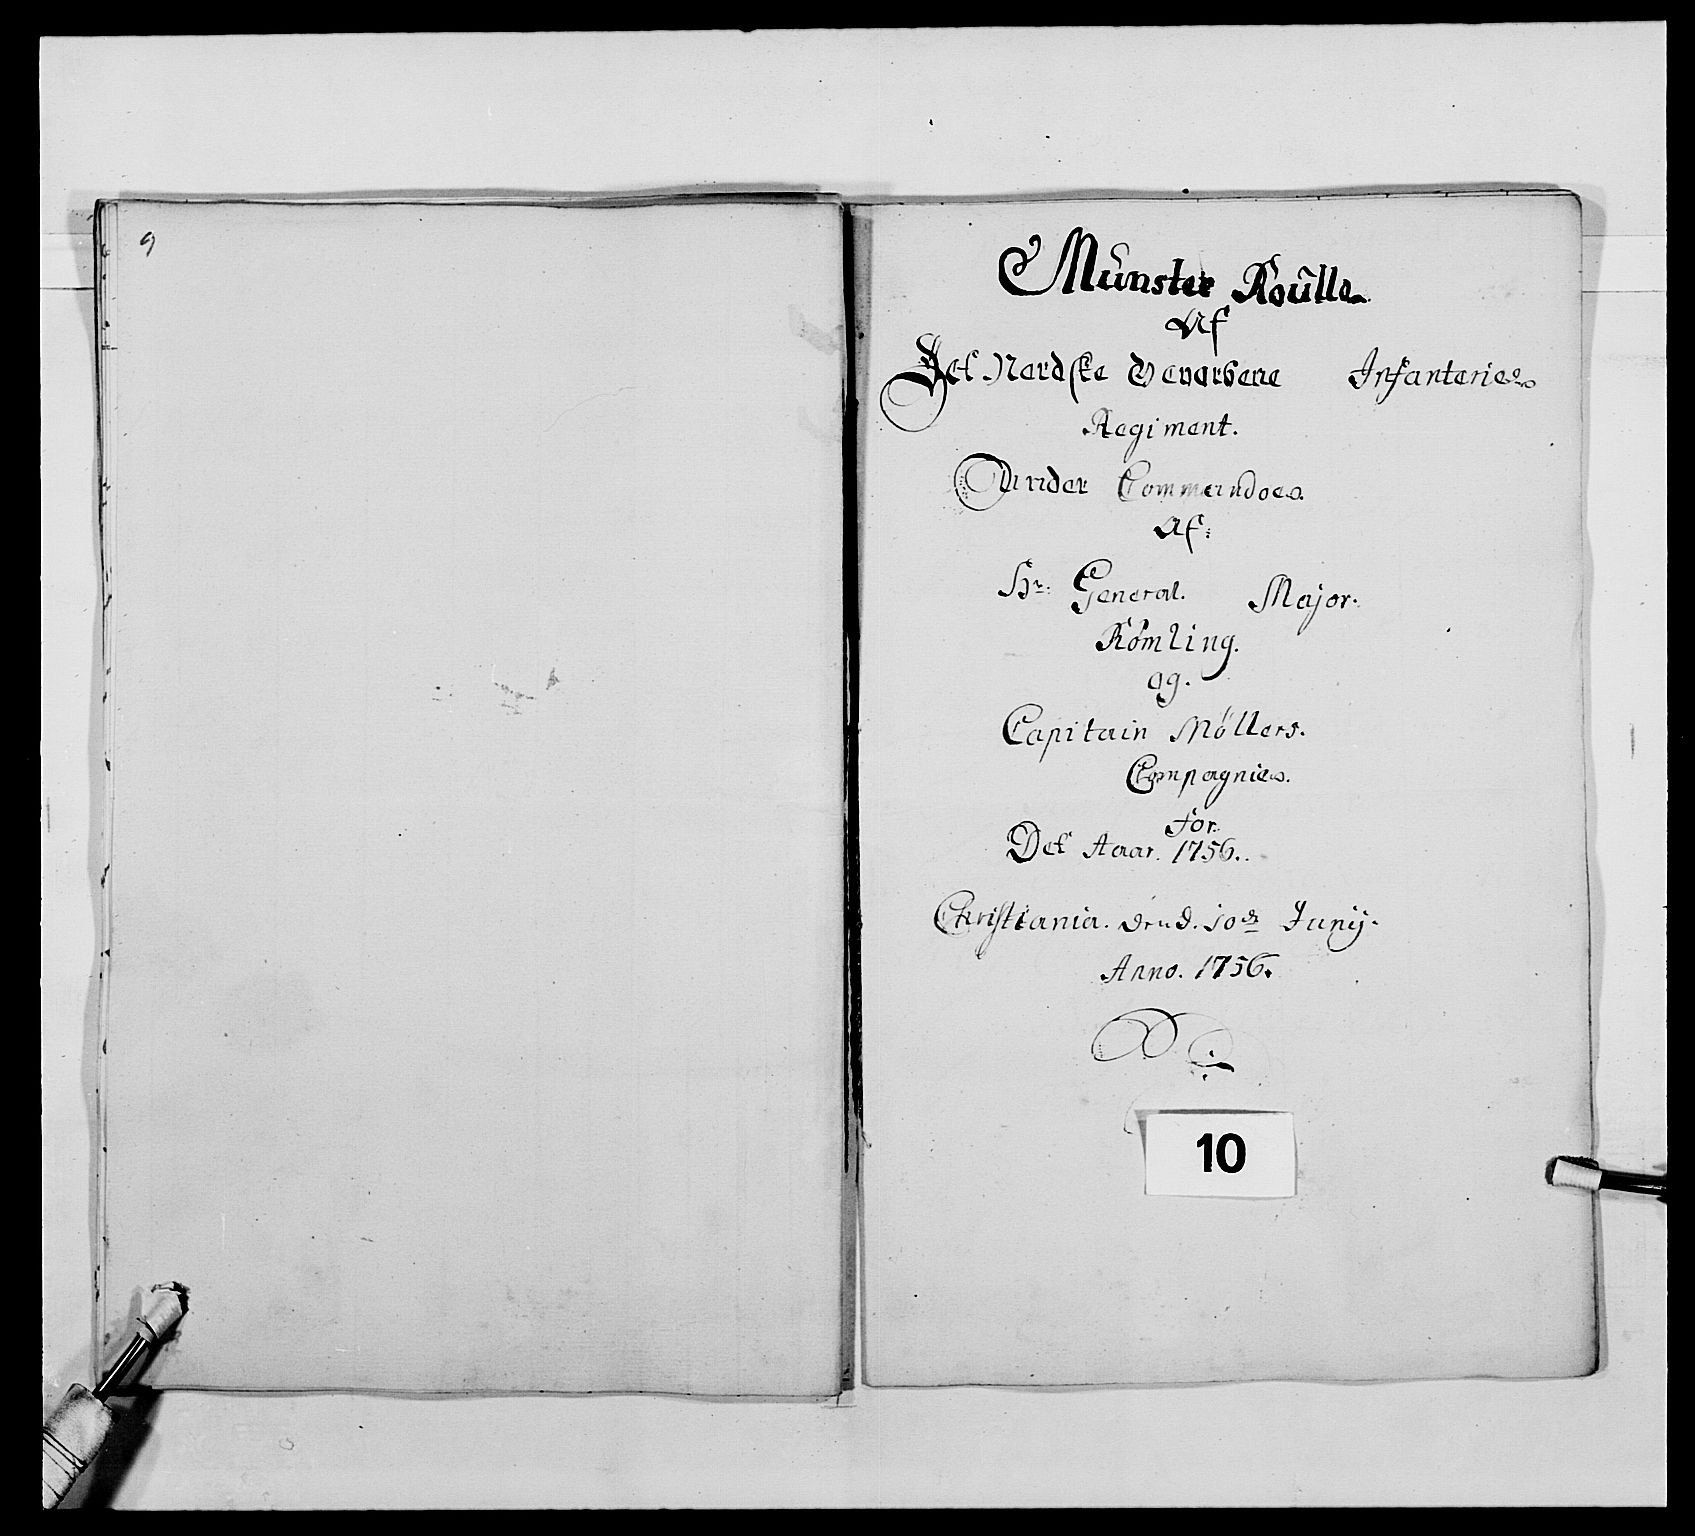 9
Münster Roülle
Af
Det Nordske Geworbene Infanterie
Regiment.
Under Commandoe
Af:
Hr: General. Major.
Römling.
og.
Capitain Möllers.
Compagnie.
for.
Det Aaar. 1756.
Christiania. dend. 10de Junij.
Anno. 1756.
10